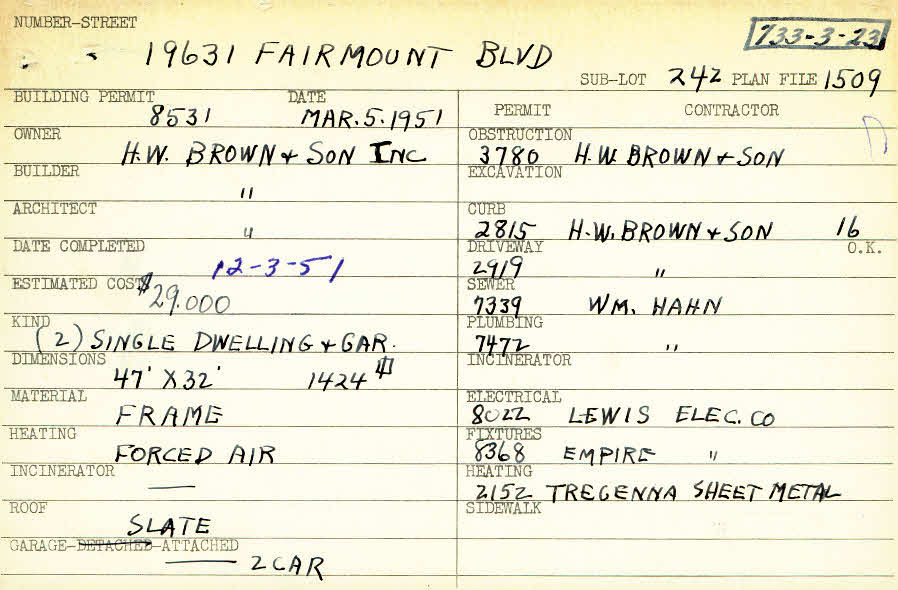 NUMBER-STREET
733-3-23
19631 FAIRMOUNT BLVD
SUB-LOT 242 PLAN FILE 1509
BUILDING PERMIT DATE
8531 MAR. 5. 1951
OWNER
H.W. BROWN & SON INC
BUILDER
"
ARCHITECT
"
DATE COMPLETED
12-3-51
ESTIMATED COST
$29.000
KIND
(2) SINGLE DWELLING & GAR.
DIMENSIONS
47' X 32' 1424
MATERIAL
FRAME
HEATING
FORCED AIR
INCINERATOR
—
ROOF
SLATE
GARAGE-DETACHED-ATTACHED
2 CAR
PERMIT CONTRACTOR
OBSTRUCTION
3780 H.W. BROWN & SON
EXCAVATION
CURB
2815 H.W. BROWN & SON 16
DRIVEWAY O.K.
2919 "
SEWER
7339 WM. HAHN
PLUMBING
7472 "
INCINERATOR
ELECTRICAL
8022 LEWIS ELEC. CO
FIXTURES
8368 EMPIRE "
HEATING
2152 TREGENNA SHEET METAL
SIDEWALK